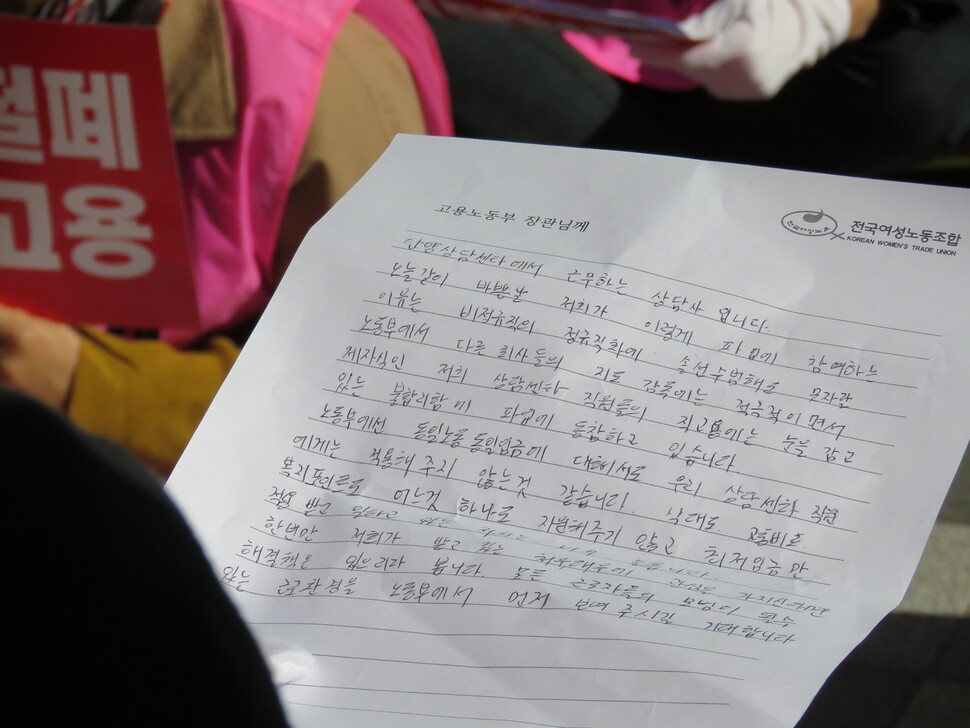 철폐
고용
고용노동부 장관님께
전국여성노동조합
KOREAN WOMEN'S TRADE UNION
안양상담센타에서 근무하는 상담사 입니다.
오늘같이 바쁜날 저희가 이렇게 파업에 참여하는
이유는 비정규직의 정규직화에 솔선수범해할
노동부에서 다른 회사들의 지도 감독에는 적극적이면서
제자식인 저희 상담센타 직원들의 직고용에는 눈을 감고
있는 불합리함에 파업에 동참하고 있습니다
노동부에선 동일노동 동일임금에 대해서도 우리 상담센타 직원
에게는 적용해 주지 않는것 같습니다. 식대도 교통비도
복지포인트도 어느것 하나도 지원해주지 않고 최저임금만
적용 받고 있다고
한번만 저희가 받고 있는 관심을 가지신다면
해결책은 있으리라 봅니다. 모든 근로자들의 모범이 될수
있는 근로환경을 노동부에서 먼저 보여 주시길 기대합니다